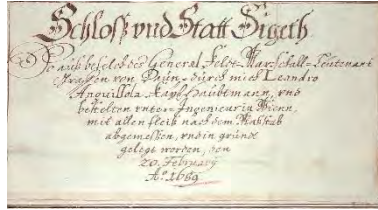 Schloß vnd Statt Sigeth
So auß befelch des General Feldt-Marschall-Leutenant
Graffen von Daun, durch mich Leandro
Anguissola Kays: Haubtmann, vnd
bestelten vnter-Ingenieur in Wienn,
mit allen fleiß nach dem Maßstab
abgemessen, vnd in grundt
gelegt worden, den
20. February
Aº 1689